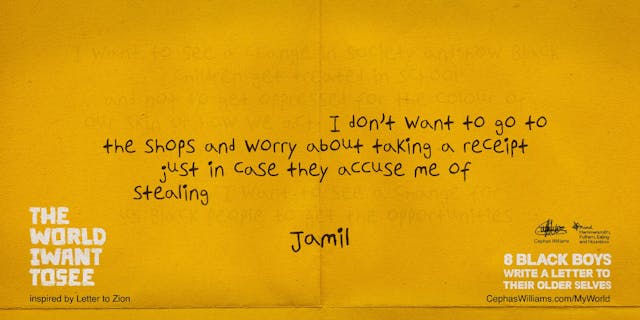 I want to see a change in society and how Black
children get treated in school
and not to get oppressed for the colour of
our skin or how we act
I don't want to go to
the shops and worry about taking a receipt
just in case they accuse me of
stealing
I want to see a
us Black people to get the opportunities
Jamil
THE
WORLD
I WANT
TO SEE
inspired by Letter to Zion
Cephas Williams
mind
Hammersmith,
Fulham, Ealing
and Hounslow
8 BLACK BOYS
WRITE A LETTER TO
THEIR OLDER SELVES
CephasWilliams.com/MyWorld